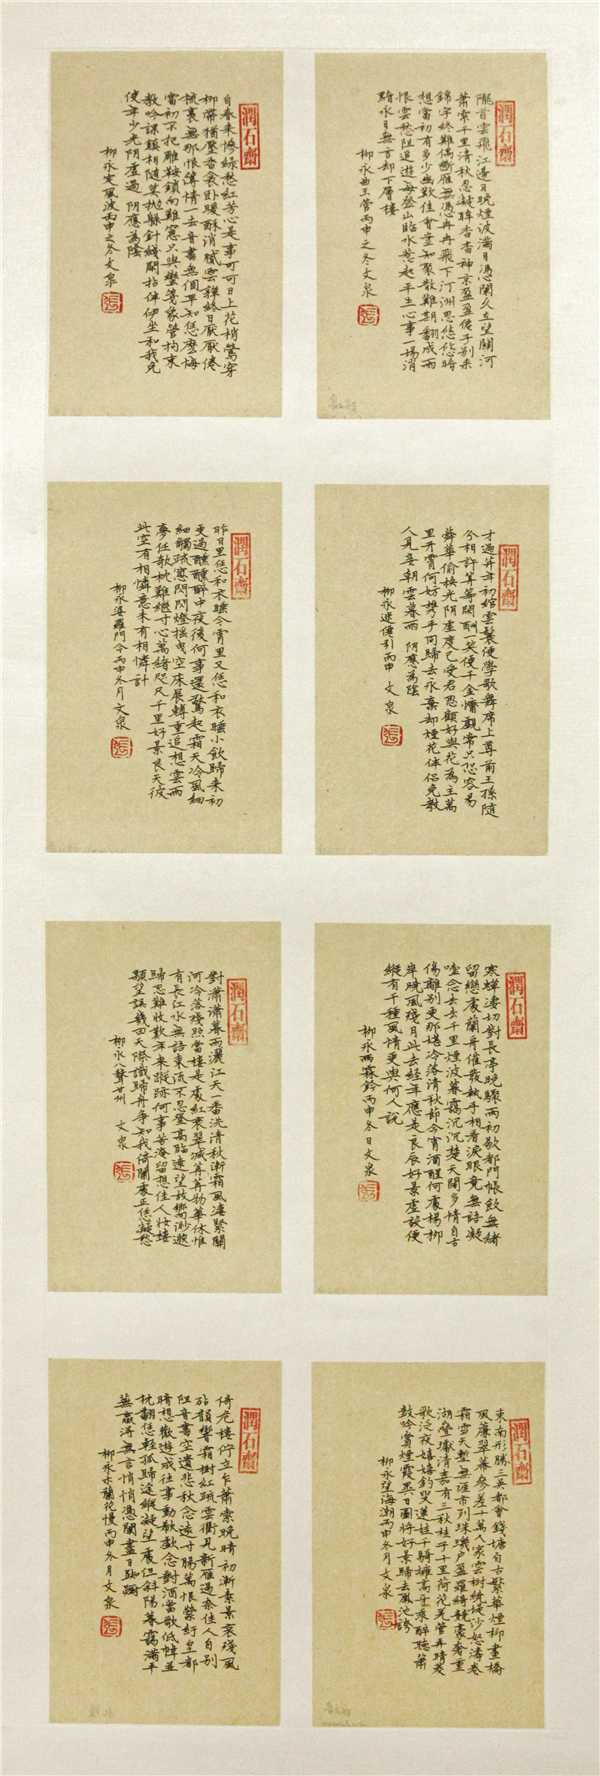 潤石齋
隴首雲飛江邊日晚煙波滿目憑闌久立望關河
蕭索千里清秋忍凝眸杳杳神京盈盈僊子別來
錦字終難偶斷雁無憑冉冉飛下汀洲思悠悠暗
想當初有多少幽歡佳會豈知聚散難期翻成雨
恨雲愁阻追遊每登山臨水惹起平生心事一場消
黯永日無言卻下層樓
柳永曲玉管丙申之冬文泉
張
潤石齋
自春來慘綠愁紅芳心是事可可日上花梢鶯穿
柳帶猶壓香衾臥暖酥消膩雲嚲終日厭厭倦
梳裹無那恨薄情一去音書無個早知恁麼悔
當初不把雕鞍鎖向雞窗只與蠻箋象管拘束
教吟課鎮相隨莫拋躲針綫閒拈伴伊坐和我免
使年少光陰虛過 陰應為陰
柳永定風波丙申之冬文泉
張
潤石齋
才過笄年初綰雲鬟便學歌舞席上尊前王孫隨
分相許算等閒酬一笑便千金慵覷常只恐容易
蕣華偷換光陰虛度已受君恩顧好與花為主萬
里丹霄何妨攜手同歸去永棄卻煙花伴侶免教
人見妾朝雲暮雨 陰應為陰
柳永迷僊引丙申 文泉
張
潤石齋
昨日里恁和衣睡今宵里又恁和衣睡小飲歸來初
更過醺醺醉中夜後何事還驚起霜天冷風細
細觸疏窗閃閃燈搖曳空床展轉重追想雲雨
夢任敧枕難繼寸心萬緒咫尺千里好景良天彼
此空有相憐意未有相憐計
柳永婆羅門令丙申冬月文泉
張
潤石齋
寒蟬淒切對長亭晚驟雨初歇都門帳飲無緒
留戀處蘭舟催發執手相看淚眼竟無語凝
噎念去去千里煙波暮靄沉沉楚天闊多情自古
傷離別更那堪冷落清秋節今宵酒醒何處楊柳
岸曉風殘月此去經年應是良辰好景虛設便
縱有千種風情更與何人說
柳永雨霖鈴丙申冬日文泉
張
潤石齋
對瀟瀟暮雨灑江天一番洗清秋漸霜風淒緊關
河冷落殘照當樓是處紅衰翠減苒苒物華休惟
有長江水無語東流不忍登高臨遠望故鄉渺邈
歸思難收歎年來蹤跡何事苦淹留想佳人妝樓
顒望誤幾回天際識歸舟爭知我倚闌處正恁凝愁
柳永八聲甘州 文泉
張
潤石齋
東南形勝三吳都會錢塘自古繁華煙柳畫橋
風簾翠幕參差十萬人家雲樹繞堤沙怒濤卷
霜雪天塹無涯市列珠璣戶盈羅綺競豪奢重
湖疊巘清嘉有三秋桂子十里荷花羌管弄晴菱
歌泛夜嬉嬉釣叟蓮娃千騎擁高牙乘醉聽簫
鼓吟賞煙霞異日圖將好景歸去鳳池誇
柳永望海潮丙申冬月文泉
張
潤石齋
倚危樓佇立乍蕭索晚晴初漸素景衰殘風
砧韻響霜樹紅疏雲衢見新雁過奈佳人自別
阻音書空遣悲秋念遠寸腸萬恨縈紆皇都
暗想歡遊成往事動欷歔念對酒當歌低幃並
枕翻恁輕孤歸途縱凝望處但斜陽暮靄滿平
蕪贏得無言悄悄憑闌盡日踟躕
柳永木蘭花慢丙申冬月文泉
張